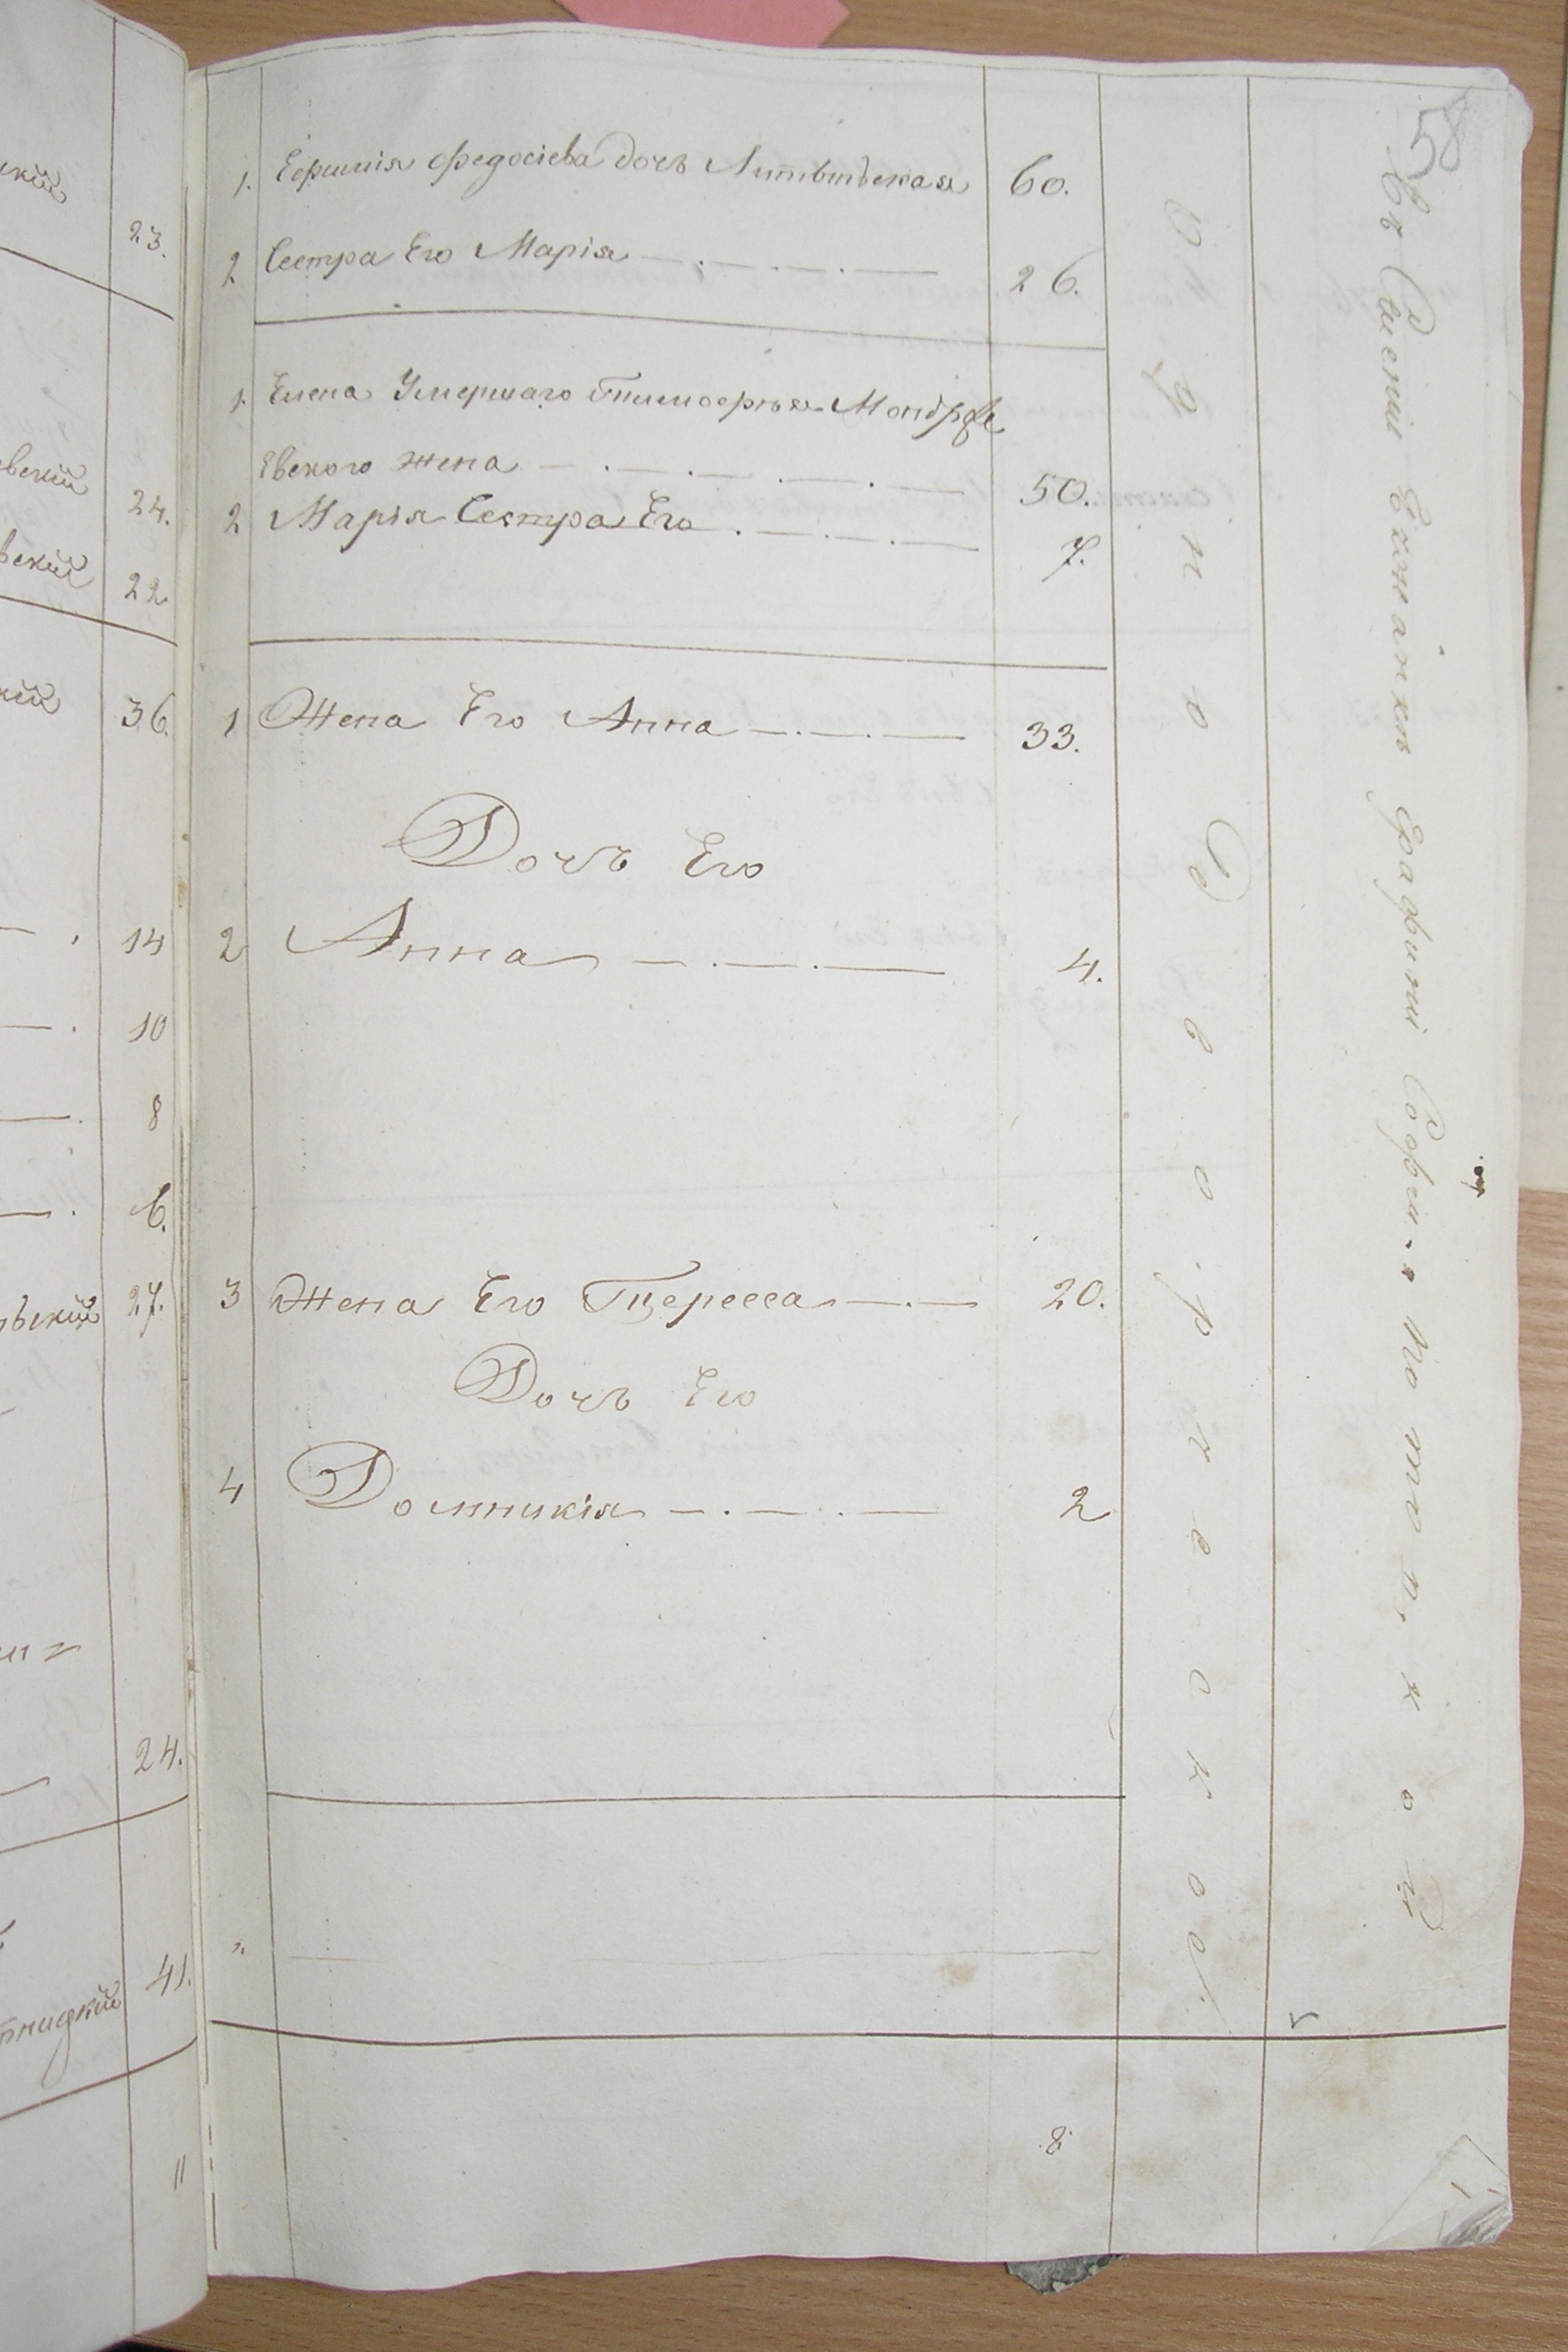 скій
23.
евскій 24.
вскій 22
кій 36.
14
10
8
6.
вскій 27.
24.
41.
тницкій
11
58
1. Ефимія Федосіева дочь Литвинская 60.
2 Сестра Его Марія 26.
1. Елена Умершаго Тимофея
евского жена 50.
2 Марія Сестра Его 7.
1 Жена Его Анна 33.
Дочь Его
2 Анна 4.
3 Жена Его Тересса 20.
Дочь Его
4 Домникія 2
8.
Однодворческое.
Въ Селеніи Графини Софіи Потоцкой